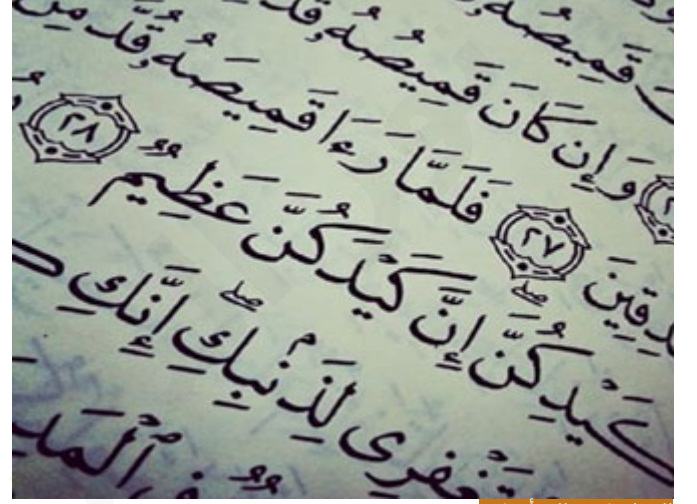 قَمِيصُهُۥ
وَإِن كَانَ قَمِيصُهُۥ قُدَّ
ـدِقِينَ ٢٧ فَلَمَّا رَءَا قَمِيصَهُۥ قُدَّ مِن
كَيْدِكُنَّ ۖ إِنَّ كَيْدَكُنَّ عَظِيمٌ ٢٨
ـتَغْفِرِى لِذَنۢبِكِ ۖ إِنَّكِ
ٱلْمَد